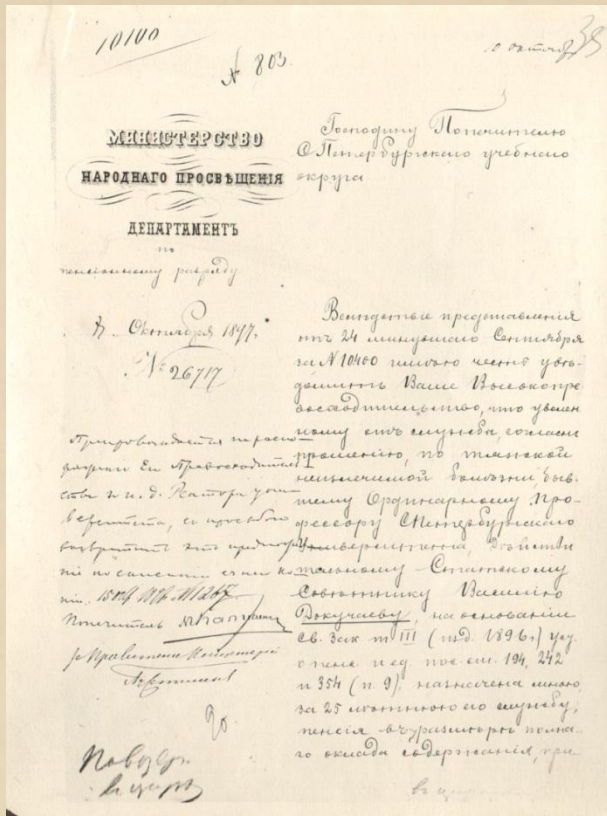 10100
№ 803.
МИНИСТЕРСТВО
НАРОДНАГО ПРОСВѢЩЕНІЯ
ДЕПАРТАМЕНТЪ
по
пенсіонному разряду
Октября 1897.
№ 26717
Господину Попечителю
С.Петербургскаго учебнаго
округа.
Вслѣдствіе представленія
отъ 24 минувшаго Сентября
за № 10400 имѣю честь увѣ-
домить Ваше Высокопре-
восходительство, что уволен-
ному отъ службы, согласно
прошенію, по тяжкой
неизлечимой болѣзни быв-
шему Ординарному Про-
фессору С.Петербургскаго
Университета, Дѣйстви
тельному Статскому
Совѣтнику Василію
Докучаеву, на основаніи
Св. Зак. т. III (изд. 1896 г.) уст.
о пенс. и ед. пос. ст. 194, 242
и 354 (п. 9). назначена мною,
за 25 лѣтнюю его службу,
пенсія въ размѣрѣ полна-
го оклада содержанія, при
Препровождается
Ректора
верситета, съ просьбою
возвратить
Попечитель
Правитель Канцеляріи